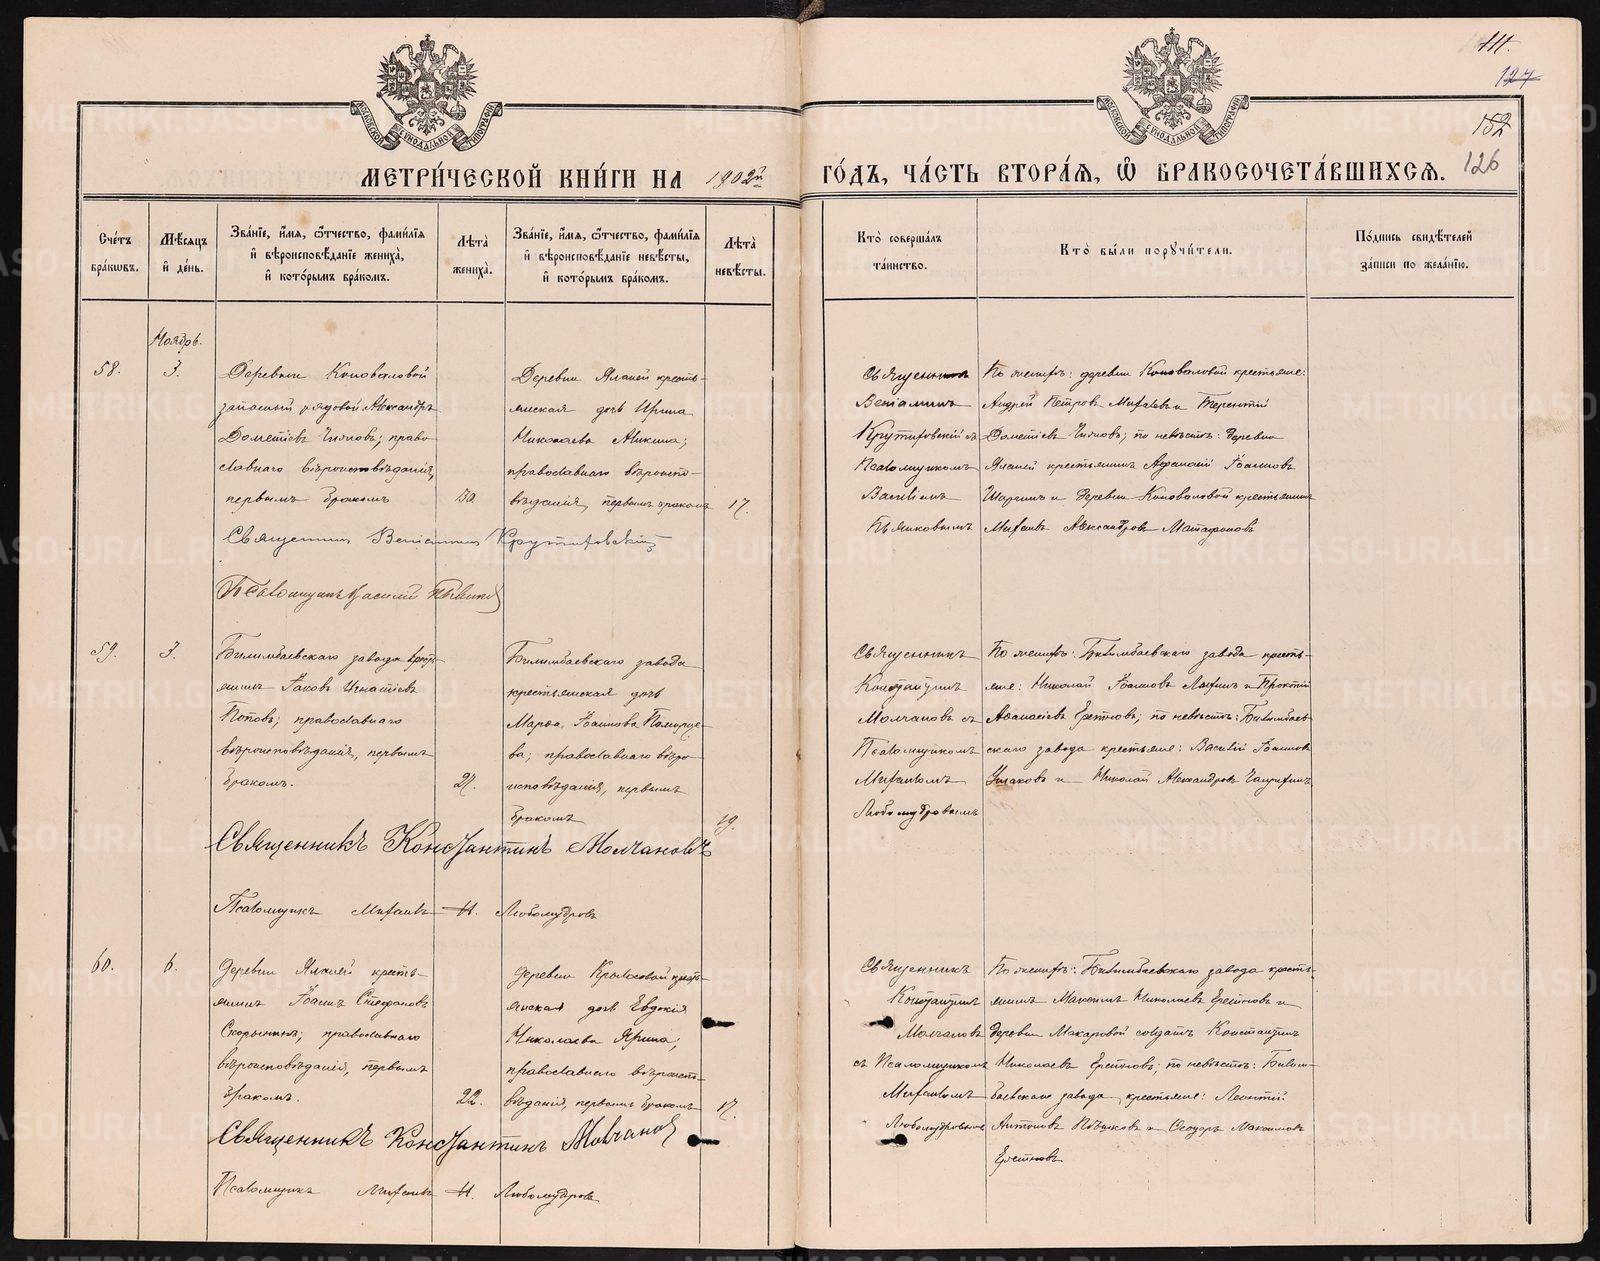 111.
127
152
126
МЕТРИ́ЧЕСКОЙ КНИ́ГИ НА 1902й ГО́ДЪ, ЧА́СТЬ ВТОРА́Я, Ѿ БРАКОСОЧЕТА́ВШИХСЯ.
Сче́тъ бра́кѡвъ.
Мѣ́сяцъ и҆ де́нь.
Зва́нїе, и҆́мя, ѻ҆́тчество, фами́лїя и҆ вѣ́роисповѣ́данїе жениха̀, и҆ кото́рымъ бра́комъ.
Лѣта̀ жениха̀.
Зва́нїе, и҆́мя, ѻ҆́тчество, фами́лїя и҆ вѣ́роисповѣ́данїе невѣ́сты, и҆ кото́рымъ бра́комъ.
Лѣта̀ невѣ́сты.
Кто̀ соверша́лъ та́инство.
Кто̀ бы́ли порꙋчи́тели.
По́дпись свидѣ́телей за́писи по жела́нїю.
Ноябрь.
58.
3.
Деревни Коноваловой
запасный рядовой Александръ
Дометіевъ; право-
славнаго вѣроисповѣданія,
первымъ бракомъ
Деревни Таланей кресть-
янская дочь Ирина
Николаева Аникина;
православнаго вѣроиспо-
вѣданія, первымъ бракомъ
17.
Священникъ
Веніаминъ
Крутиховскій съ
Псаломщикомъ
Василіемъ
Пьянковымъ
По женихѣ: деревни Коноваловой крестьяне:
Андрей Петровъ и Терентій
Дометіевъ; по невѣстѣ: деревни
крестьянинъ Афанасій Іоанновъ
и деревни Коноваловой крестьянинъ
Михаилъ Александровъ Матафоновъ
Священникъ Веніаминъ Крутиховскій
Псаломщикъ Василій Пьянковъ
59.
3.
Билимбаевскаго завода крест-
янинъ Іаковъ Игнатіевъ
Поповъ; православнаго
вѣроисповѣданія, первымъ
бракомъ.
21.
Билимбаевскаго завода
крестьянская дочь
Марѳа Іоаннова Поморце-
ва; православнаго вѣро-
исповѣданія, первымъ
бракомъ
19.
Священникъ
Константинъ
Молчановъ съ
Псаломщикомъ
Михаиломъ
Любомудровымъ
По женихѣ: Билимбаевскаго завода кресть-
яне: Николай Іоанновъ и
Аѳанасіевъ Еретновъ; по невѣстѣ: Билимбаев-
скаго завода крестьяне: Василій Іоанновъ
Ушаковъ и Николай Александровъ
Священникъ Константинъ Молчановъ
Псаломщикъ Михаилъ Н. Любомудровъ
60.
6.
Деревни кресть-
янинъ Іоаннъ Стефановъ
Скорынинъ; православнаго
вѣроисповѣданія, первымъ
бракомъ.
22.
деревни Крыласовой крест-
янская дочь Евдокія
Николаева Ярина;
православнаго вѣроиспо-
вѣданія, первымъ бракомъ
17.
Священникъ
Константинъ
Молчановъ
съ Псаломщикомъ
Михаиломъ
Любомудровымъ
По женихѣ: Билимбаевскаго завода кресть-
янинъ Максимъ Николаевъ Еретновъ и
деревни Макаровой солдатъ Константинъ
Николаевъ Еретновъ; по невѣстѣ: Билим-
баевскаго завода крестьяне: Леонтій
Антоновъ и Ѳеодоръ Максимовъ
Еретновъ
Священникъ Константинъ Молчановъ
Псаломщикъ Михаилъ Н. Любомудровъ